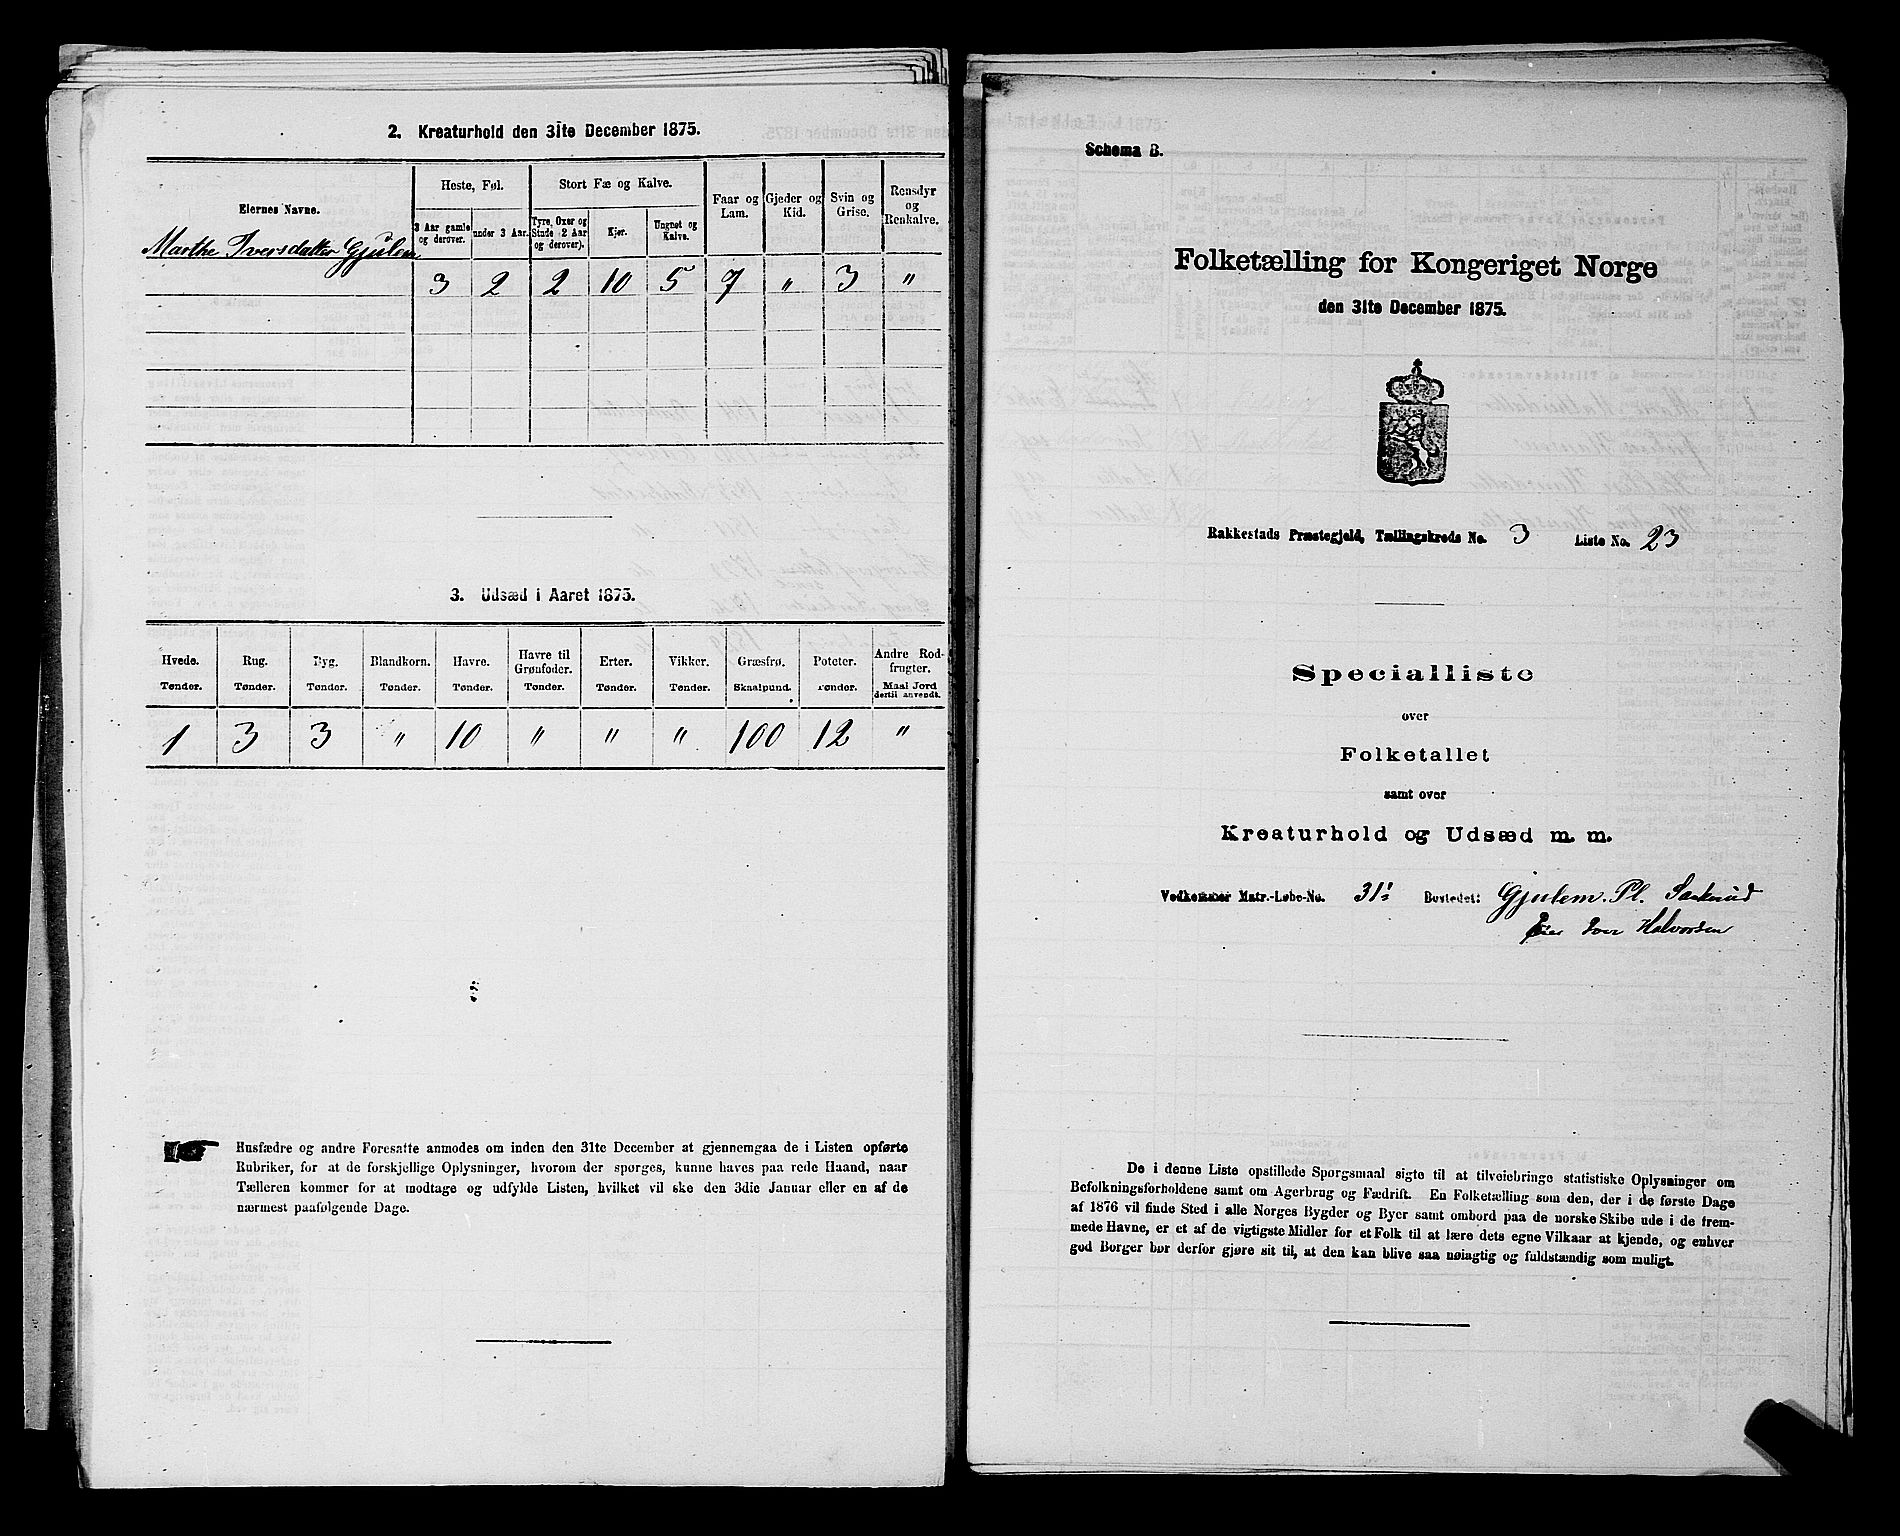 2. Kreaturhold den 31te December 1875.
Eiernes Navne.
Heste, Føl.
Stort Fæ og Kalve.
Faar og Lam.
Gjeder og Kid.
Svin og Grise.
Rensdyr og Renkalve.
3 Aar gamle og derover.
under 3 Aar.
Tyre, Oxer og Stude (2 Aar og derover).
Kjør.
Ungnøt og Kalve.
Marthe Iversdatter Gjulem
3 2 2 10 5 7 " 3 "
3. Udsæd i Aaret 1875.
Hvede. Rug. Byg. Blandkorn. Havre. Havre til Grønfoder. Erter. Vikker. Græsfrø. Poteter. Andre Rodfrugter.
Tønder. Tønder. Tønder. Tønder. Tønder. Tønder. Tønder. Tønder. Skaalpund. Tønder. Maal Jord dertil anvendt.
1 3 3 " 10 " " " 100 12 "
Husfædre og andre Foresatte anmodes om inden den 31te December at gjennemgaa de i Listen opførte
Rubriker, for at de forskjellige Oplysninger, hvorom der spørges, kunne haves paa rede Haand, naar
Tælleren kommer for at modtage og udfylde Listen, hvilket vil ske den 3die Januar eller en af de
nærmest paafølgende Dage.
Schema B.
Folketælling for Kongeriget Norge
den 31te December 1875.
Rakkestads Præstegjeld, Tællingskreds No. 3 Liste No. 23
Specialliste
over
Folketallet
samt over
Kreaturhold og Udsæd m. m.
Vedkommer Matr.-Løbe-No. 31¹ Bostedet: Gjulem. Pl.
Eier Iver Halvorsen
De i denne Liste opstillede Spørgsmaal sigte til at tilveiebringe statistiske Oplysninger om
Befolkningsforholdene samt om Agerbrug og Fædrift. En Folketælling som den, der i de første Dage
af 1876 vil finde Sted i alle Norges Bygder og Byer samt ombord paa de norske Skibe ude i de frem-
mede Havne, er et af de vigtigste Midler for et Folk til at lære dets egne Vilkaar at kjende, og enhver
god Borger bør derfor gjøre sit til, at den kan blive saa nøiagtig og fuldstændig som muligt.